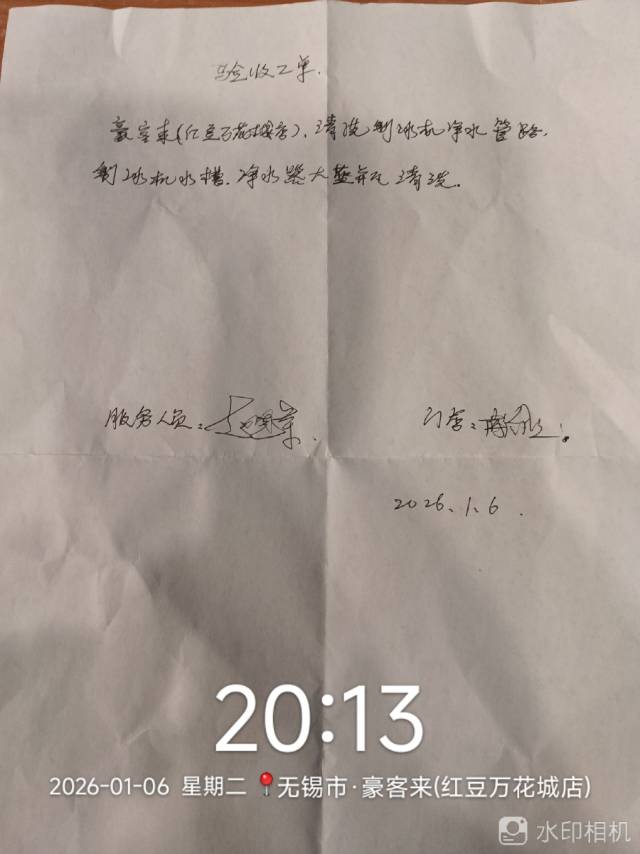 验收工单.
豪客来(红豆万花城店),清洗制冰机净水管路,
制冰机水槽.净水器大盖并瓦清洗。
服务人员:
门店:
2026.1.6.
20:13
2026-01-06 星期二 无锡市·豪客来(红豆万花城店)
水印相机